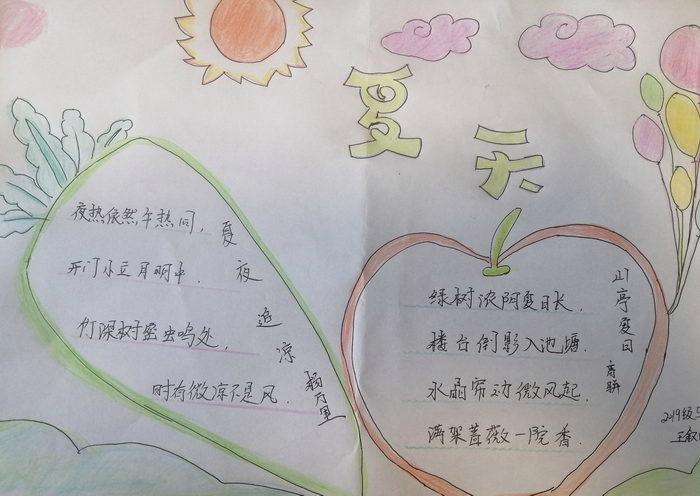 夏天
夜热依然午热同,
开门小立月明中.
竹深树密虫鸣处,
时有微凉不是风.
夏夜追凉
杨万里
绿树浓阴夏日长.
楼台倒影入池塘.
水晶帘动微风起.
满架蔷薇一院香.
山亭夏日
高骈